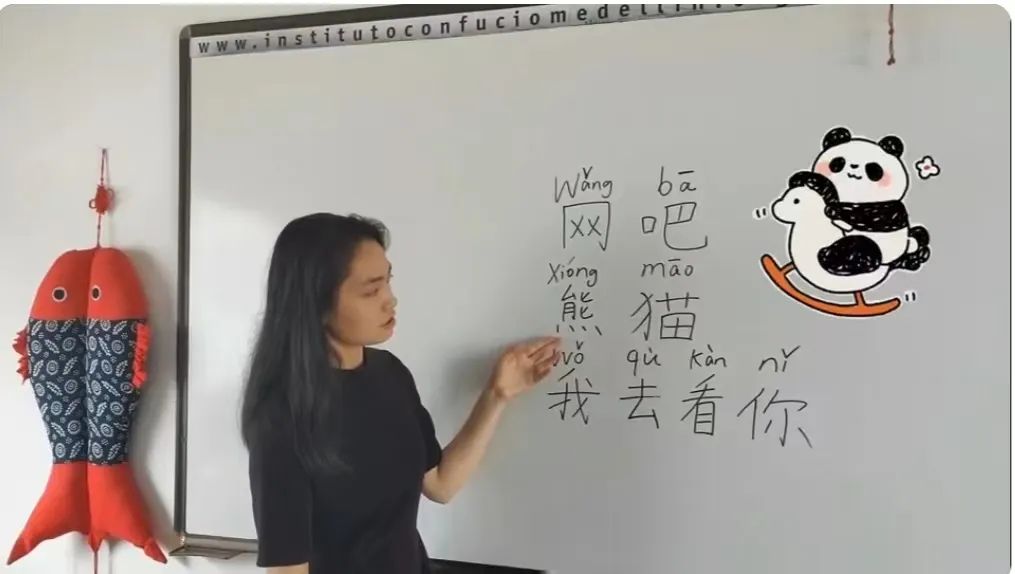 www.institutoconfuciomedellin.
Wǎng bā
网吧
Xióng māo
熊猫
wǒ qù kàn nǐ
我去看你